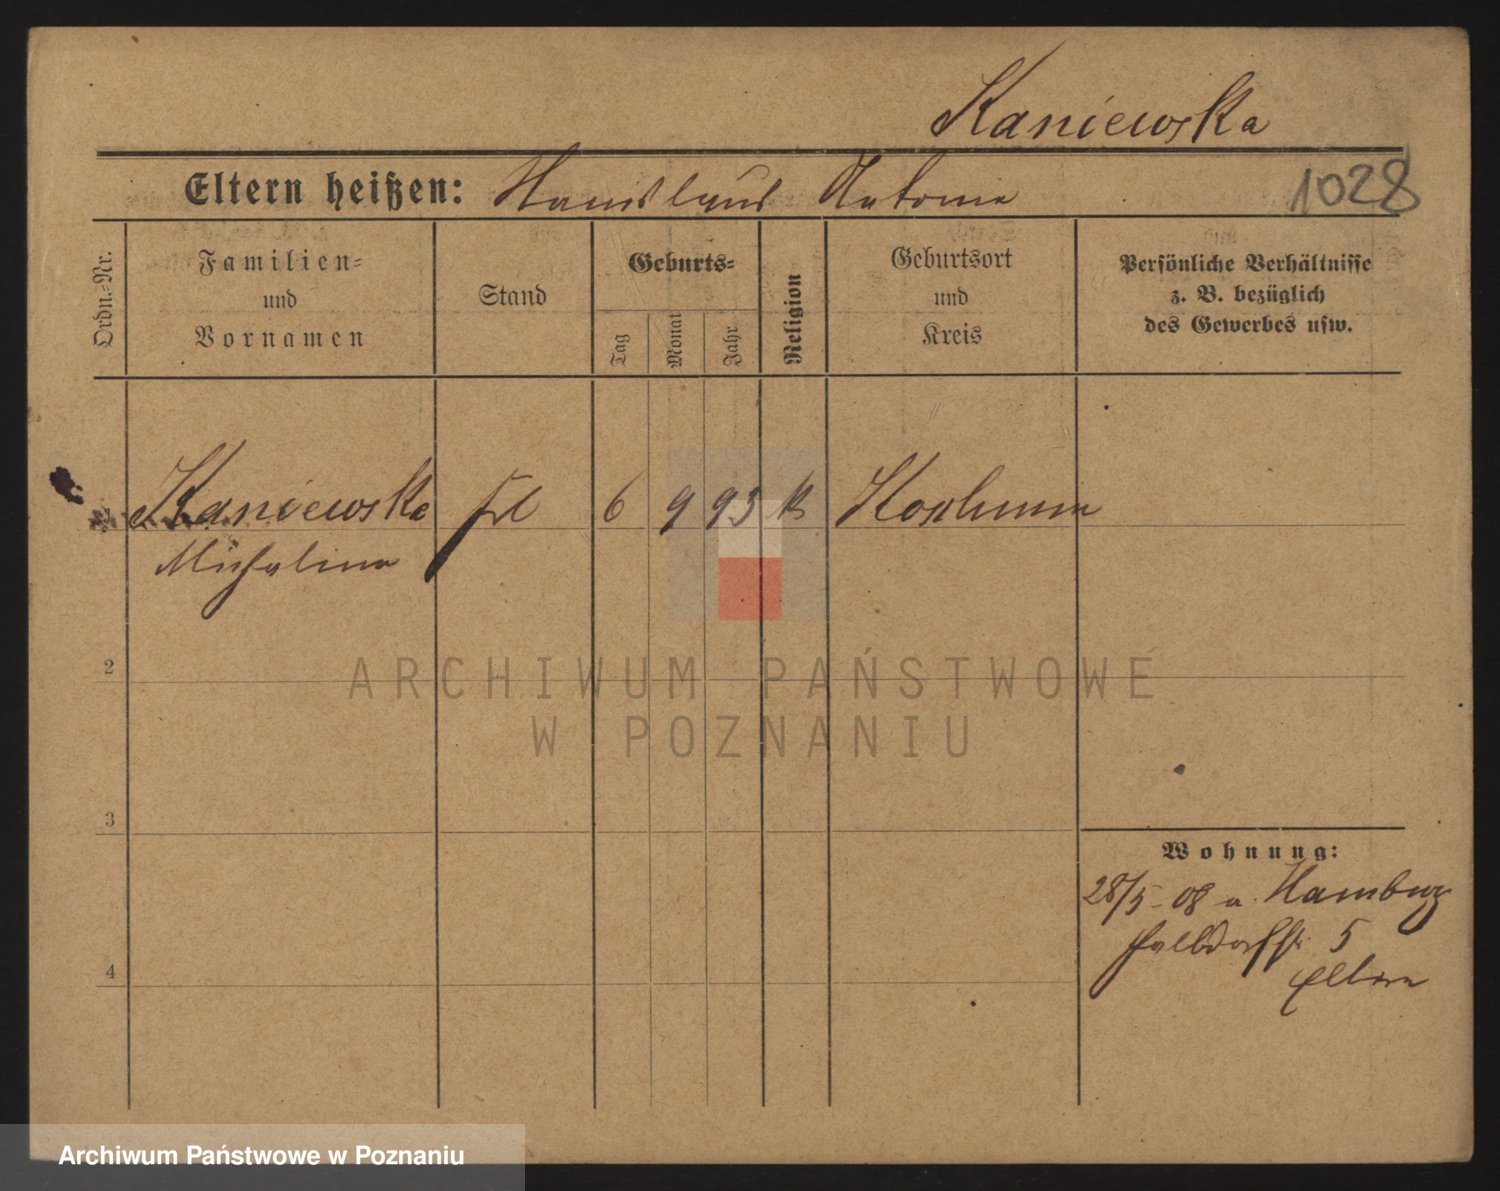 Kaniewska
Eltern heißen: Stanislaus Antonie
1028
Ordn.-Nr.
Familien-
und
Vornamen
Stand
Geburts-
Tag
Monat
Jahr
Religion
Geburtsort
und
Kreis
Persönliche Verhältnisse
z. B. bezüglich
des Gewerbes usw.
Kaniewska Frl 6 9 93 k
Michalina
2
3
4
Wohnung:
28/5 - 08 n Hamburg
5
Eltern
ARCHIWUM PAŃSTWOWE
W POZNANIU
Archiwum Państwowe w Poznaniu